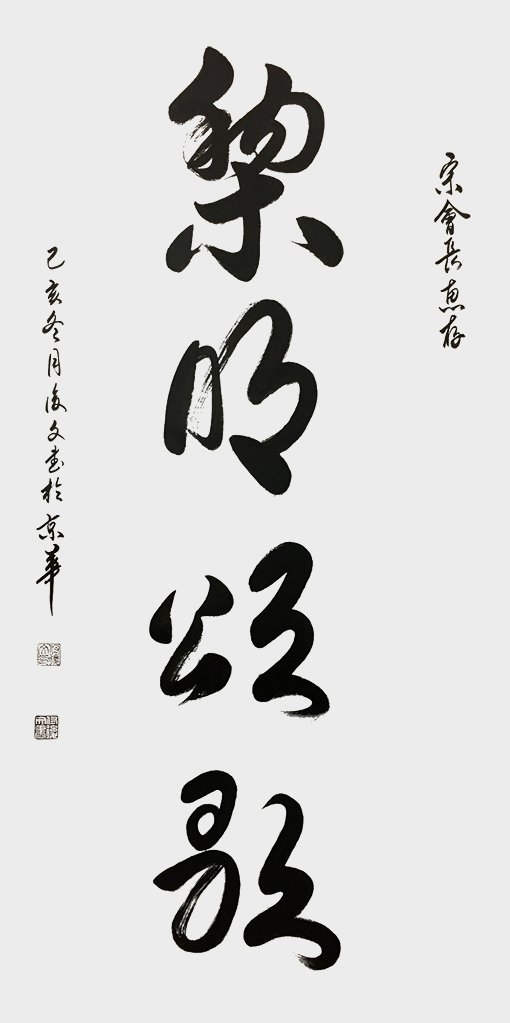 宗會長惠存
黎明頌歌
己亥冬月俊文書於京華